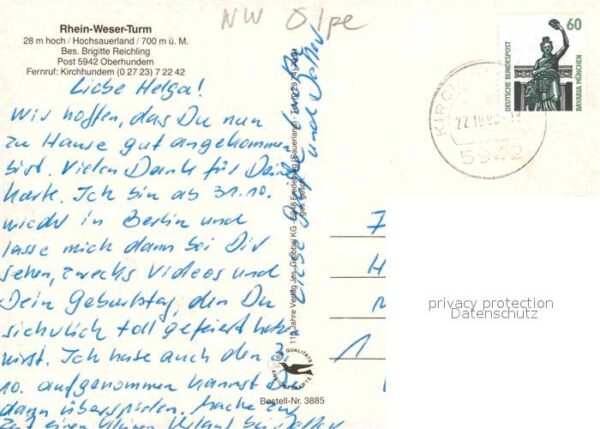 NW Olpe
Rhein-Weser-Turm
28 m hoch / Hochsauerland / 700 m ü. M.
Bes. Brigitte Reichling
Post 5942 Oberhundem
Fernruf: Kirchhundem (0 27 23) 7 22 42
Liebe Helga!
Wir hoffen, das Du nun
zu Hause gut angekommen
bist. Vielen Dank für Deine
Karte. Ich bin ab 31.10.
wieder in Berlin und
lasse mich dann bei Dir
sehen, zwecks Videos und
Dein Geburtstag, den Du
sicherlich toll gefeiert hast
wirst. Ich habe auch den 3.
10. aufgenommen kannst Du
dann überspielen. Mache zur
Zeit einen kleinen Urlaub bei
Liebe Grüße
und
110 Jahre Verlag
Bestell-Nr. 3885
QUALITÄTS
60
DEUTSCHE BUNDESPOST
BAVARIA MÜNCHEN
KIRCH
5942
H
1
privacy protection
Datenschutz